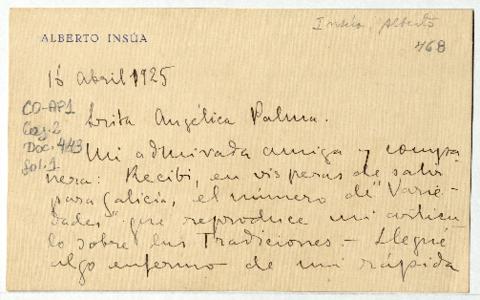 ALBERTO INSÚA
Insúa, Alberto
468
15 abril 1925
CO-AP1
Caj. 2
Doc. 443
fol. 1
Srita Angélica Palma.
Mi admirada amiga y compa-
ñera: Recibí, en vísperas de salir
para Galicia, el número de "Varie-
dades" que reproduce mi artícu-
lo sobre las Tradiciones. — Llegué
algo enfermo de mi rápida